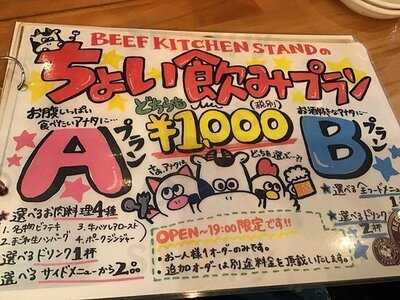 BEEF KITCHEN STANDの
ちょい飲みプラン
お腹いっぱい
食べたいアナタに…
どちらも
¥1,000
(税別)
お酒好きなアナタに…
Aプラン
Bプラン
さぁ、アナタは
どっちを選ぶ…?!
★選べるお肉料理4種
1.名物ビフテキ
3.牛ハツレアロースト
4.ポークジンジャー
選べるドリンク1杯
選べるサイドメニューから2つ
選べる全フードメニュー
選べるドリンク
2杯
OPEN～19:00限定です!!
お一人様1オーダーのみです。
追加オーダーは別途料金を頂戴いたします。